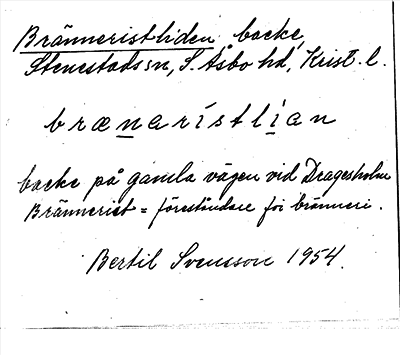 Bränneristliden, backe,
Stenestads sn, S. Åsbo hd, Krist. l.
brænarístlían
backe på gamla vägen vid Dragesholm
Brännerist = föreståndare för bränneri.
Bertil Svensson 1954.